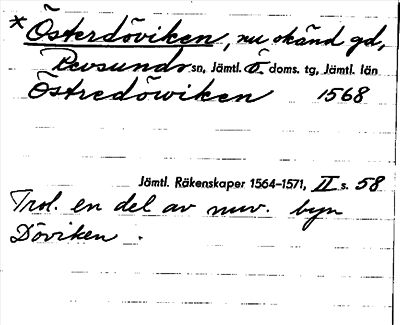 * Österdöviken, nu okänd gd,
Revsunds sn, Jämtl. Ö doms. tg, Jämtl. län
Östredöwiken 1568
Jämtl. Räkenskaper 1564-1571, II s. 58
Trol. en del av nuv. byn
Döviken.